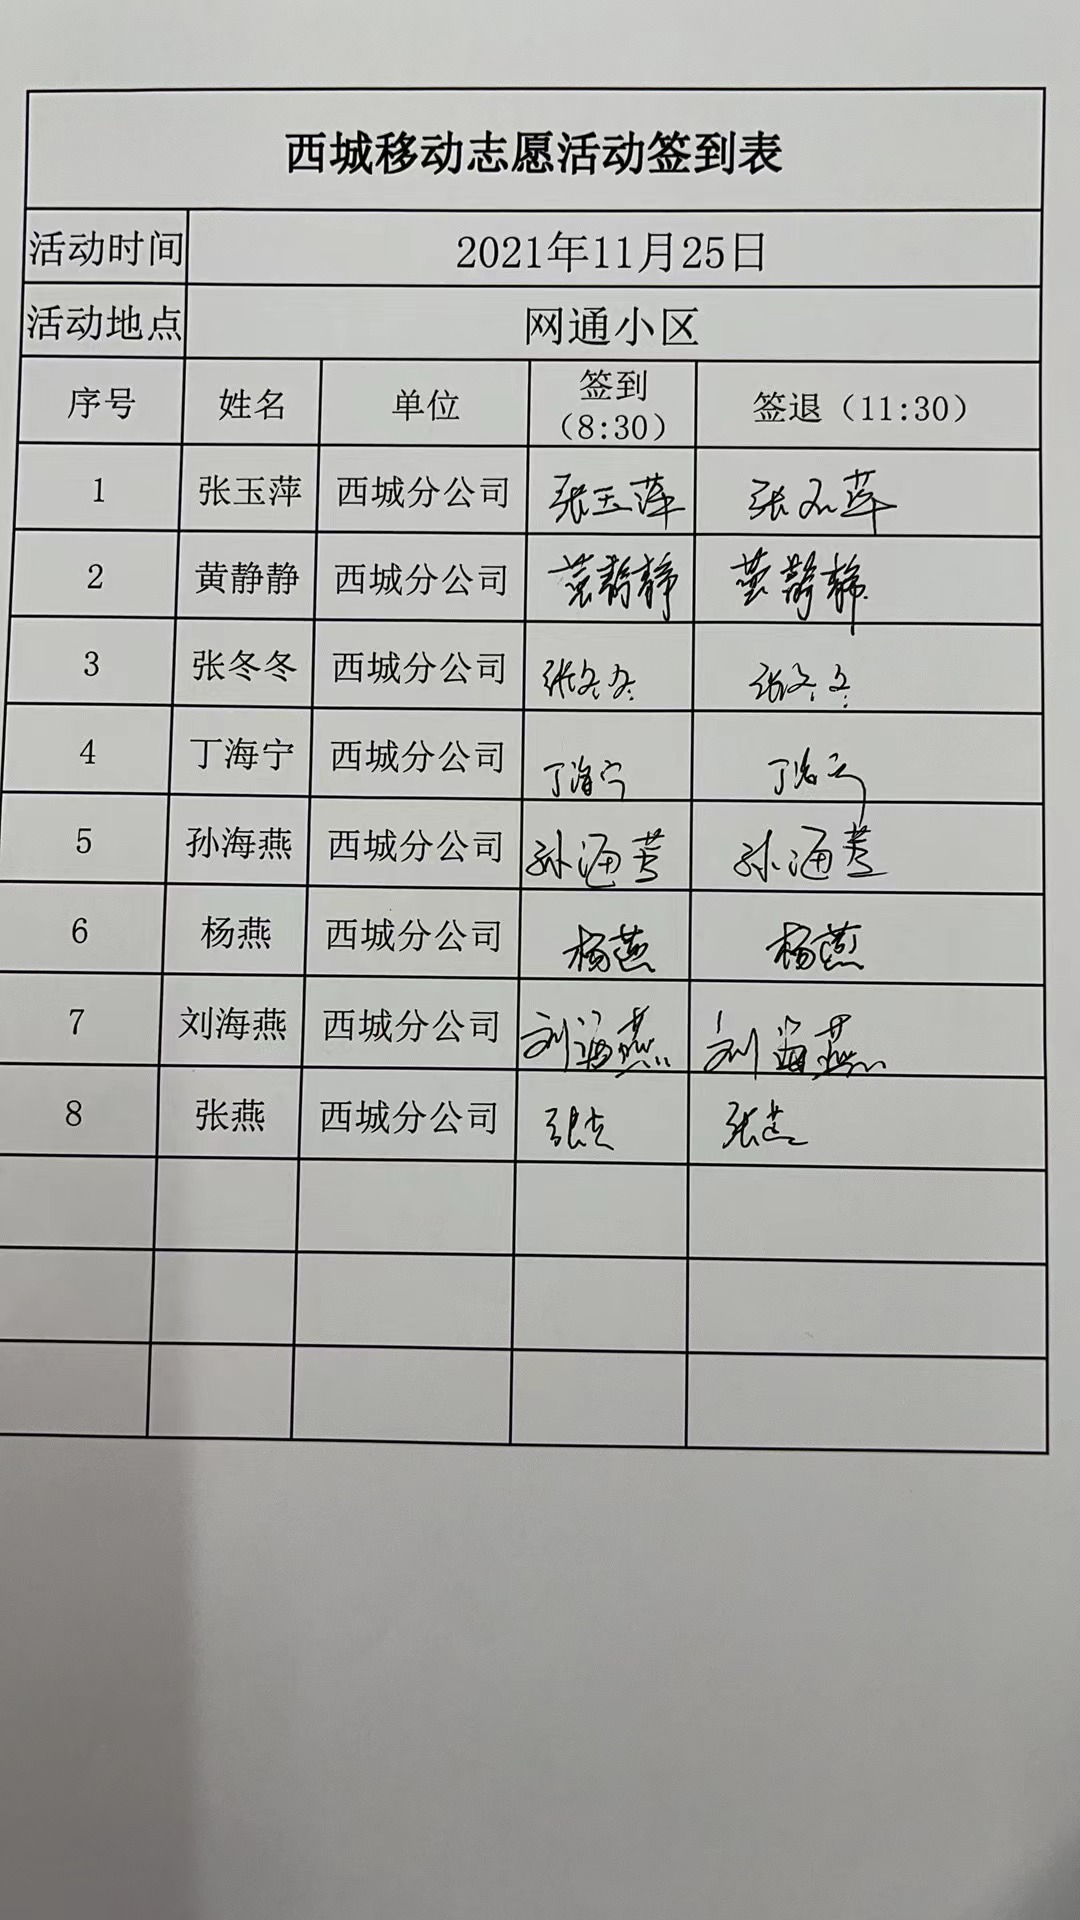 西城移动志愿活动签到表
活动时间 2021年11月25日
活动地点 网通小区
序号 姓名 单位 签到（8:30） 签退（11:30）
1 张玉萍 西城分公司 张玉萍 张玉萍
2 黄静静 西城分公司 黄静静 黄静静
3 张冬冬 西城分公司 张冬冬 张冬冬
4 丁海宁 西城分公司 丁海宁 丁海宁
5 孙海燕 西城分公司 孙海燕 孙海燕
6 杨燕 西城分公司 杨燕 杨燕
7 刘海燕 西城分公司 刘海燕 刘海燕
8 张燕 西城分公司 张燕 张燕